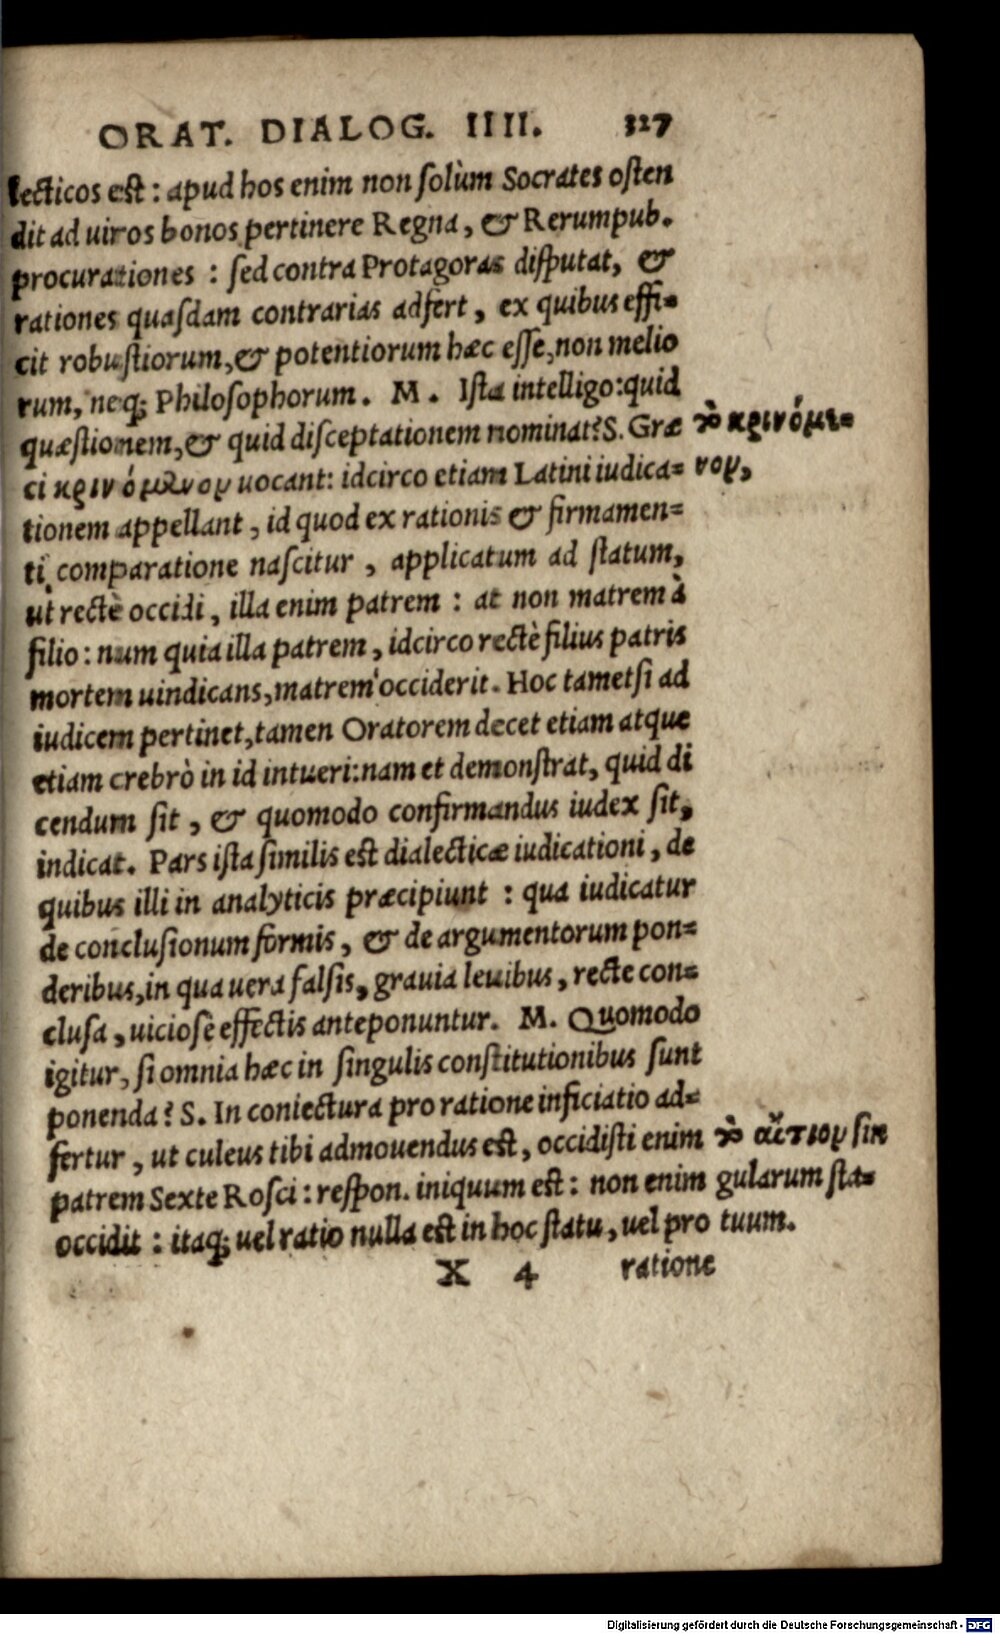 ORAT. DIALOG. IIII. 327
lecticos est: apud hos enim non solùm Socrates osten
dit ad uiros bonos pertinere Regna, & Rerumpub.
procurationes: sed contra Protagoras disputat, &
rationes quasdam contrarias adfert, ex quibus effi-
cit robustiorum, & potentiorum hæc esse, non melio
rum, neq; Philosophorum. M. Ista intelligo: quid
quæstionem, & quid disceptationem nominat? S. Græ
ci κρινόμενον uocant: idcirco etiam Latini iudica-
tionem appellant, id quod ex rationis & firmamen-
ti comparatione nascitur, applicatum ad statum,
ut rectè occidi, illa enim patrem: at non matrem à
filio: num quia illa patrem, idcirco rectè filius patris
mortem uindicans, matrem occiderit. Hoc tametsi ad
iudicem pertinet, tamen Oratorem decet etiam atque
etiam crebrò in id intueri: nam et demonstrat, quid di
cendum sit, & quomodo confirmandus iudex sit,
indicat. Pars ista similis est dialecticæ iudicationi, de
quibus illi in analyticis præcipiunt: qua iudicatur
de conclusionum formis, & de argumentorum pon-
deribus, in qua uera falsis, grauia leuibus, recte con-
clusa, uiciosè effectis anteponuntur. M. Quomodo
igitur, si omnia hæc in singulis constitutionibus sunt
ponenda? S. In coniectura pro ratione inficiatio ad-
fertur, ut culeus tibi admouendus est, occidisti enim
patrem Sexte Rosci: respon. iniquum est: non enim
occidit: itaq; uel ratio nulla est in hoc statu, uel pro
X 4 ratione
τὸ κρινόμε-
νον,
τὸ αἴτιον sin
gularum sta-
tuum.
Digitalisierung gefördert durch die Deutsche Forschungsgemeinschaft - DFG